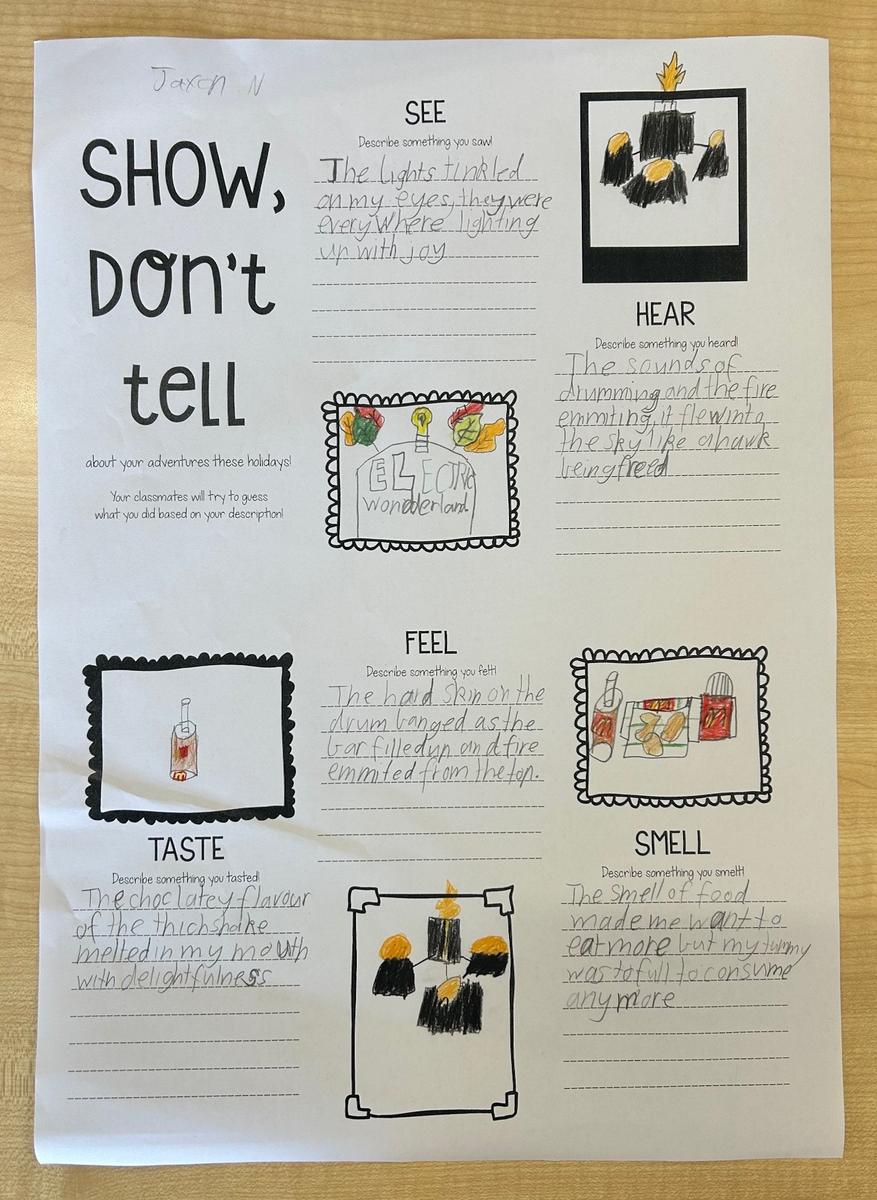 Jaxon N
SHOW,
DON't
tell
about your adventures these holidays!
Your classmates will try to guess
what you did based on your description!
SEE
Describe something you saw!
The lights tinkled
on my eyes, they were
everywhere lighting
up with joy
ELECTRIC
wonederland
HEAR
Describe something you heard!
The sounds of
drumming and the fire
emmiting, it flew into
the sky like a hawk
being freed
FEEL
Describe something you felt!
The hard skin on the
drum banged as the
bar filled up and fire
emmited from the top.
TASTE
Describe something you tasted!
The choclatey flavour
of the thichshake
melted in my mouth
with delightfulness
SMELL
Describe something you smelt!
The smell of food
made me want to
eat more but my tummy
was to full to consume
any more